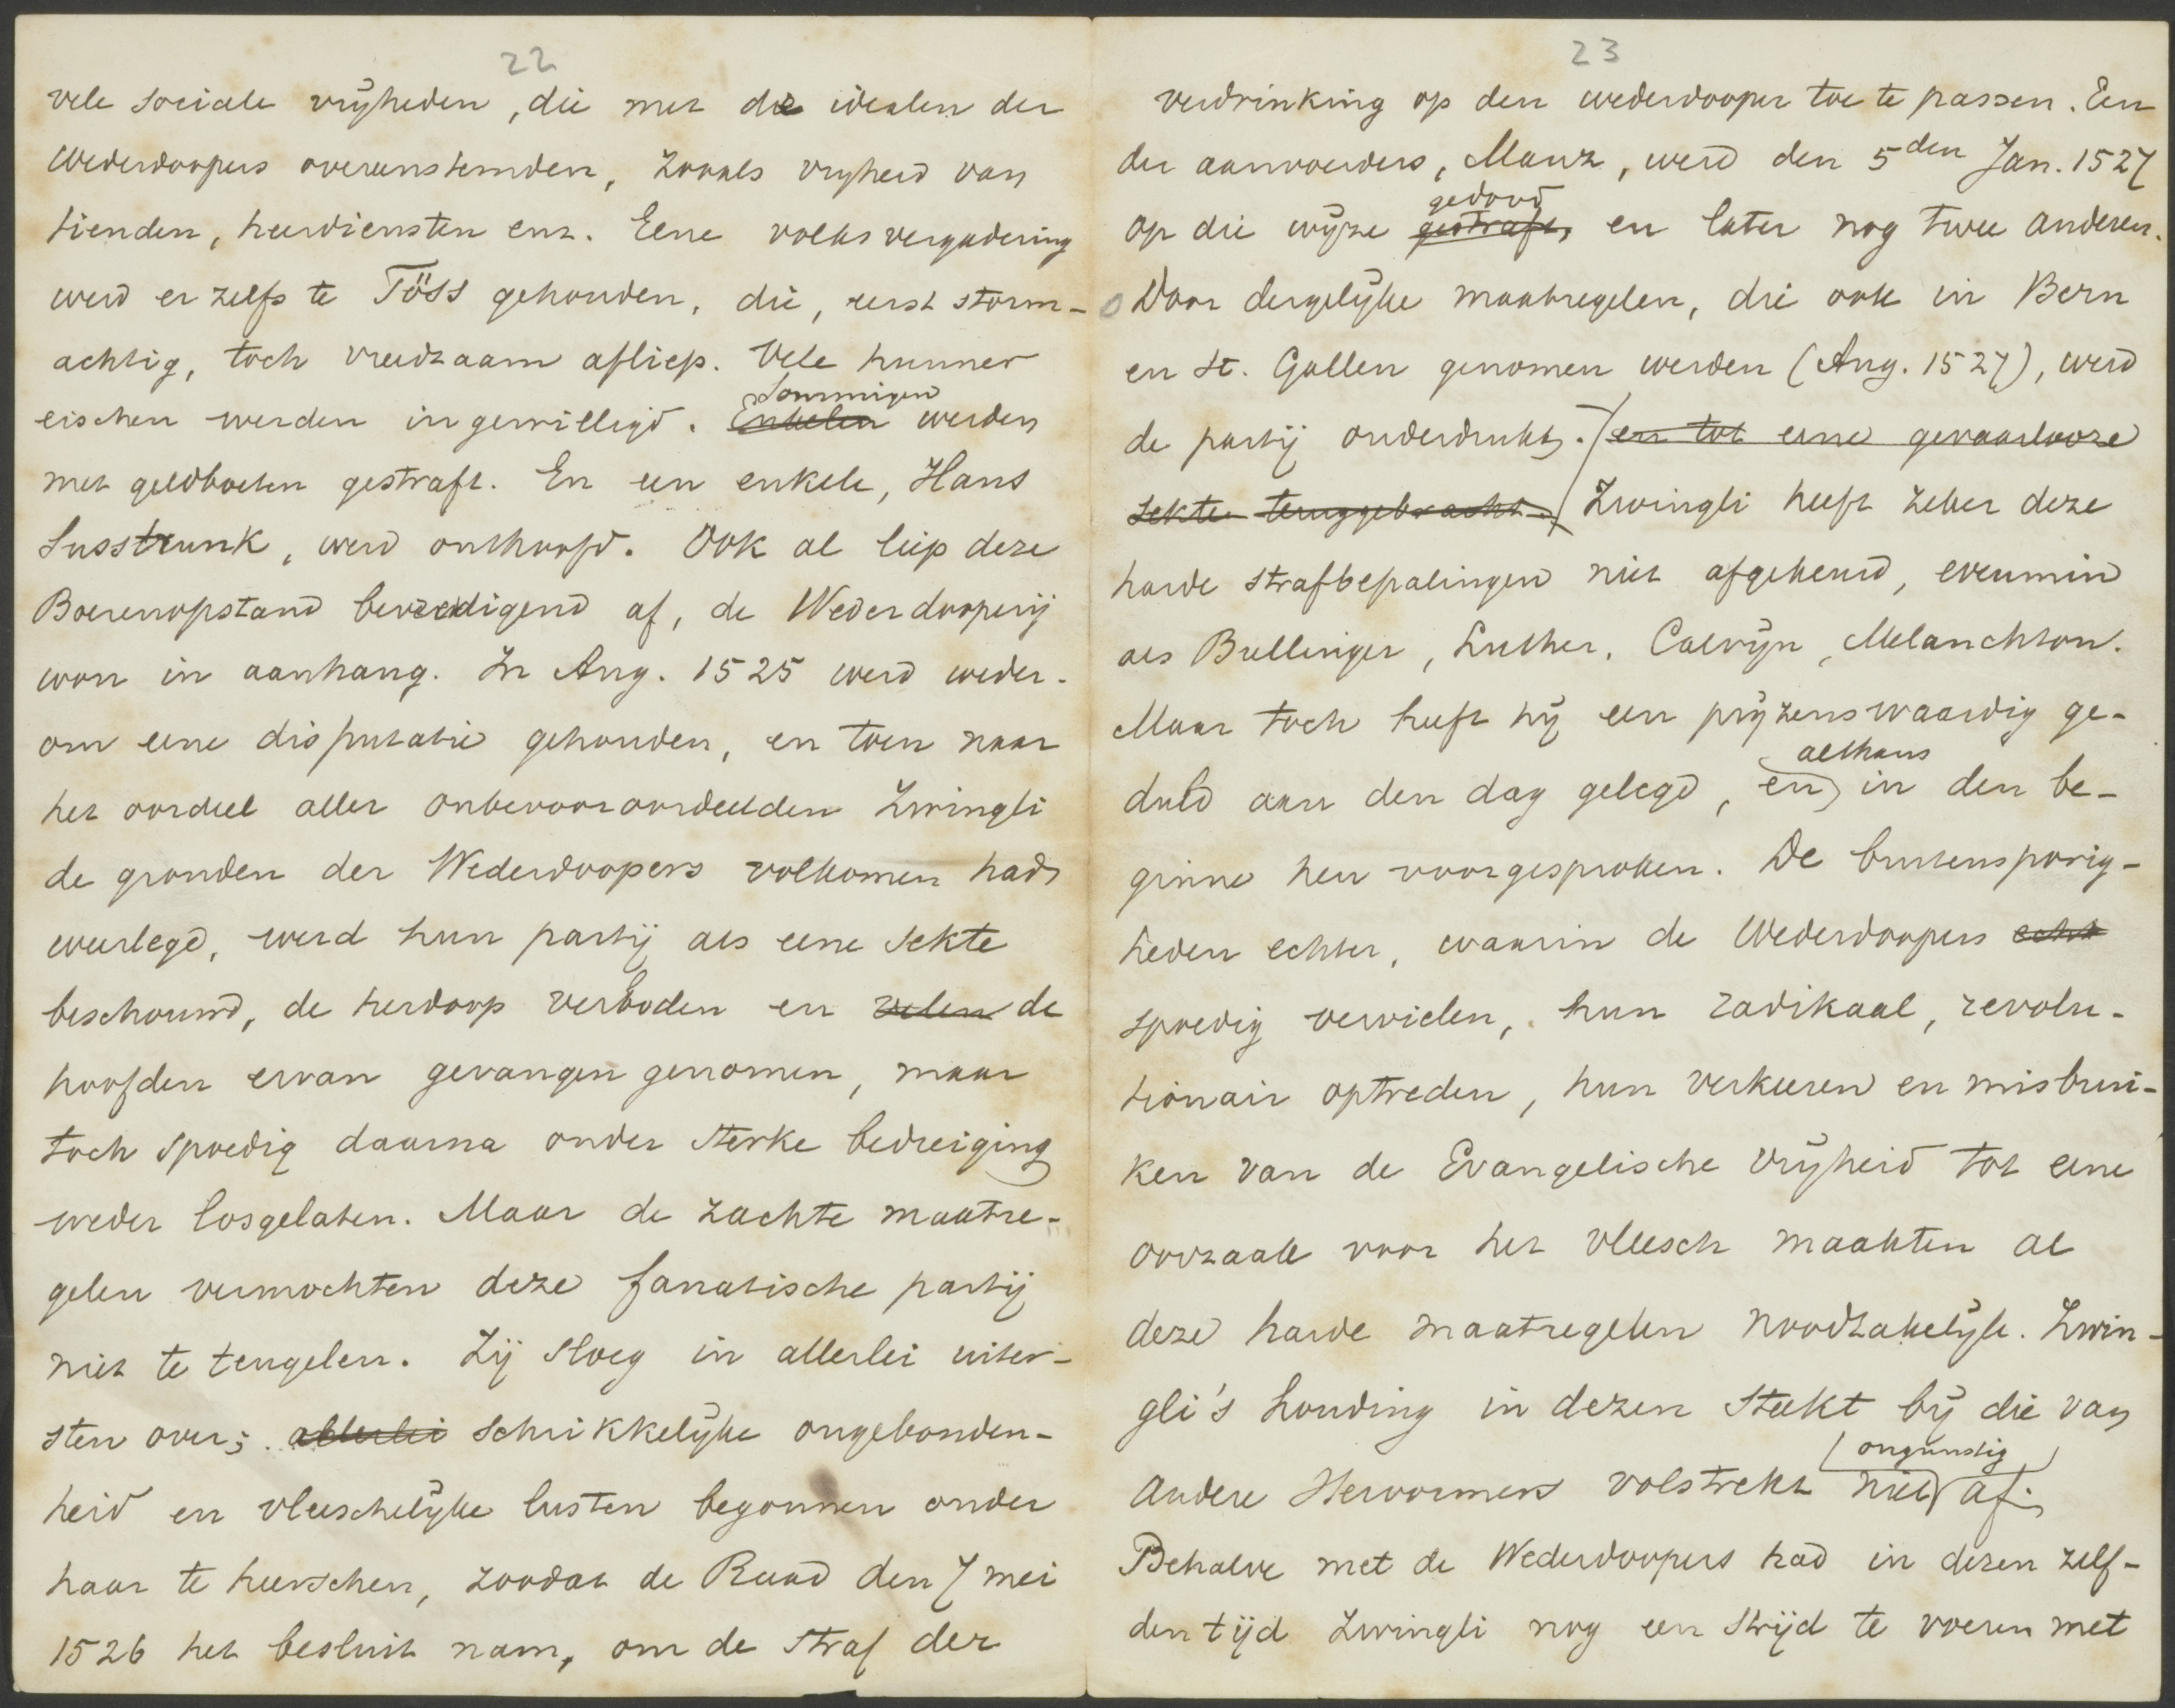 22
vele sociale vrijheden, die met de idealen der
Wederdoopers overeenstemden, zooals vrijheid van
tienden, heerdiensten enz. Eene volksvergadering
werd er zelfs te Töss gehouden, die, eerst storm-
achtig, toch vreedzaam afliep. Vele hunner
Sommigen
eischen werden ingewilligd. Enkelen werden
met geldboeten gestraft. En een enkele, Hans
Susstrunk, werd onthoofd. Ook al liep deze
Boerenopstand bevredigend af, de Wederdooperij
won in aanhang. In Aug. 1525 werd weder-
om eene disputatie gehouden, en toen naar
het oordeel aller onbevooroordeelden Zwingli
de gronden der Wederdoopers volkomen had
weerlegd, werd hun partij als eene sekte
beschouwd, de herdoop verboden en velen de
hoofden ervan gevangen genomen, maar
toch spoedig daarna onder sterke bedreiging
weder losgelaten. Maar de zachte maatre-
gelen vermochten deze fanatische partij
niet te teugelen. Zij sloeg in allerlei uiter-
sten over; allerlei schrikkelijke ongebonden-
heid en vleeschelijke lusten begonnen onder
haar te heerschen, zoodat de Raad den 7 mei
1526 het besluit nam, om de straf der
23
verdrinking op den wederdooper toe te passen. Een
der aanvoerders, Manz, werd den 5den Jan. 1527
gedood
op die wijze gestraft, en later nog twee anderen.
Door dergelijke maatregelen, die ook in Bern
en St. Gallen genomen werden (Aug. 1527), werd
de partij onderdrukt. en tot eene gevaarlooze
sekte teruggebracht. Zwingli heeft zeker deze
harde strafbepalingen niet afgekeurd, evenmin
als Bullinger, Luther, Calvijn, Melanchton.
Maar toch heeft hij een prijzenswaardig ge-
althans
duld aan den dag gelegd, en in den be-
ginne hen voorgesproken. De buitensporig-
heden echter, waarin de Wederdoopers echt
spoedig vervielen, hun radikaal, revolu-
tionair optreden, hun verkeeren en misbrui-
ken van de Evangelische vrijheid tot eene
oorzaak voor het vleesch maakten al
deze harde maatregelen noodzakelijk. Zwin-
gli's houding in dezen steekt bij die van
ongunstig
andere Hervormers volstrekt niet af.
Behalve met de Wederdoopers had in dezen zelf-
den tijd Zwingli nog een strijd te voeren met